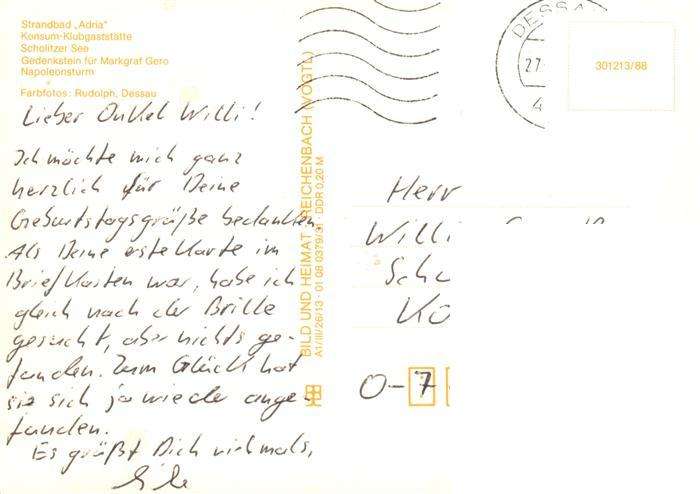 Strandbad „Adria"
Konsum-Klubgaststätte
Scholitzer See
Gedenkstein für Markgraf Gero
Napoleonsturm
Farbfotos: Rudolph, Dessau
Lieber Onkel Willi!
Ich möchte mich ganz
herzlich für Deine
Geburtstagsgrüße bedanken.
Als Deine erste Karte im
Briefkasten war, habe ich
gleich nach der Brille
gesucht, aber nichts ge-
funden. Zum Glück hat
sie sich ja wieder ange-
funden.
Es grüßt Dich vielmals,
BILD UND HEIMAT REICHENBACH (VOGTL)
A1/III/26/13 · 01 08 0379/31 · DDR 0,20 M
DESSAU
27
4
301213/88
Herr
Willi
Sch
Kö
O-7